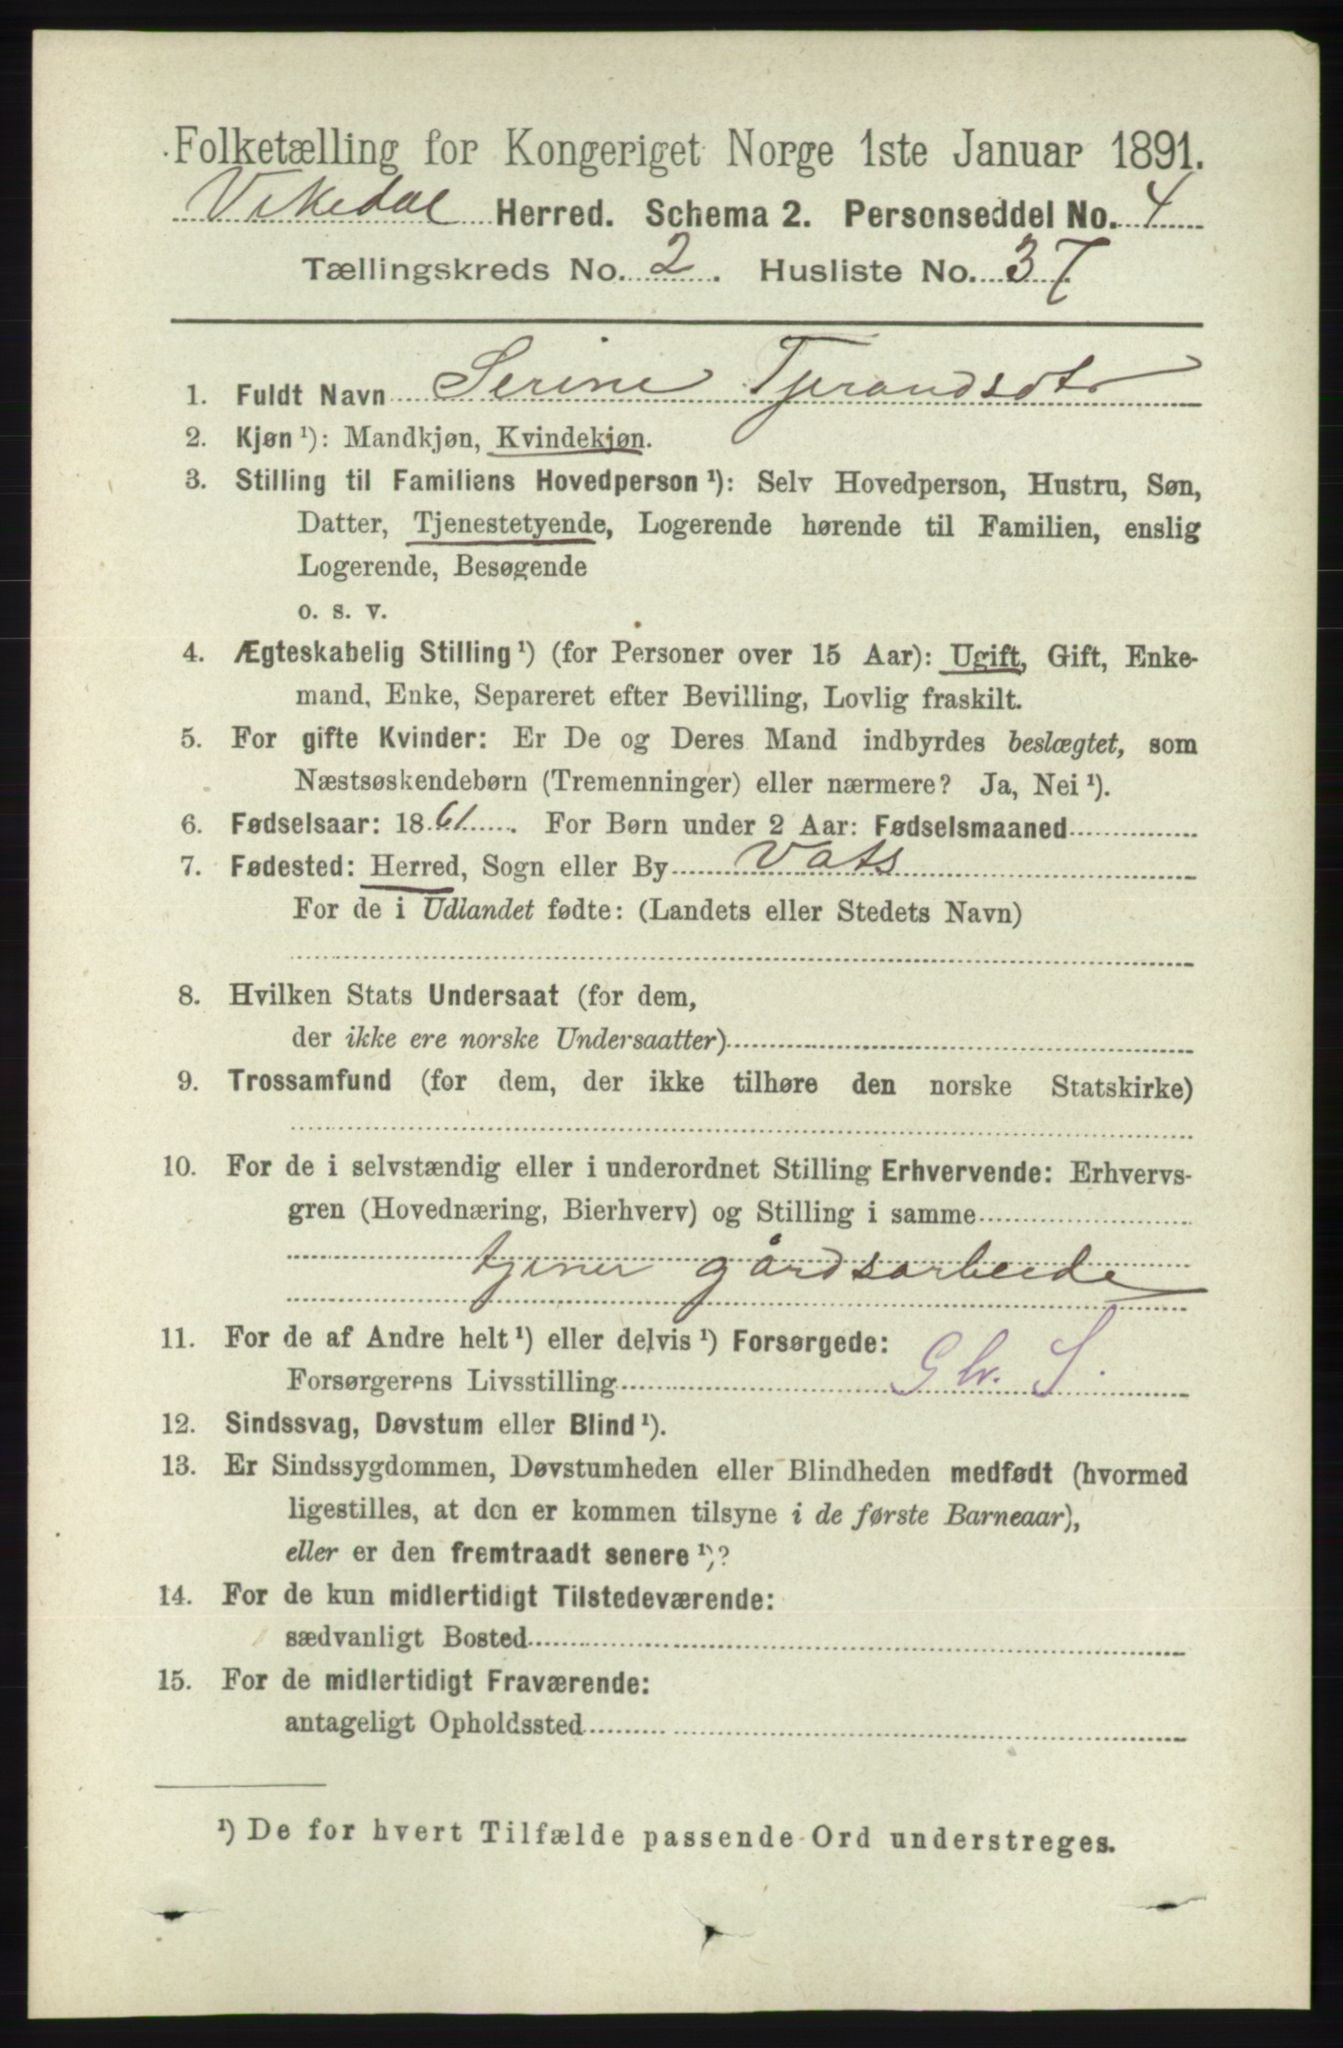 Folketælling for Kongeriget Norge 1ste Januar 1891.
Vikedal Herred. Schema 2. Personseddel No. 4
Tællingskreds No. 2. Husliste No. 37
1. Fuldt Navn Serine Tjerandsdtr
2. Kjøn ¹): Mandkjøn, Kvindekjøn.
3. Stilling til Familiens Hovedperson ¹): Selv Hovedperson, Hustru, Søn,
Datter, Tjenestetyende, Logerende hørende til Familien, enslig
Logerende, Besøgende
o. s. v.
4. Ægteskabelig Stilling ¹) (for Personer over 15 Aar): Ugift, Gift, Enke-
mand, Enke, Separeret efter Bevilling, Lovlig fraskilt.
5. For gifte Kvinder: Er De og Deres Mand indbyrdes beslægtet, som
Næstsøskendebørn (Tremenninger) eller nærmere? Ja, Nei ¹).
6. Fødselsaar: 1861. For Børn under 2 Aar: Fødselsmaaned
7. Fødested: Herred, Sogn eller By Vats
For de i Udlandet fødte: (Landets eller Stedets Navn)
8. Hvilken Stats Undersaat (for dem,
der ikke ere norske Undersaatter)
9. Trossamfund (for dem, der ikke tilhøre den norske Statskirke)
10. For de i selvstændig eller i underordnet Stilling Erhvervende: Erhvervs-
gren (Hovednæring, Bierhverv) og Stilling i samme
tjener gårdsarbeide
11. For de af Andre helt ¹) eller delvis ¹) Forsørgede:
Forsørgerens Livsstilling Glv. S.
12. Sindssvag, Døvstum eller Blind ¹).
13. Er Sindssygdommen, Døvstumheden eller Blindheden medfødt (hvormed
ligestilles, at den er kommen tilsyne i de første Barneaar),
eller er den fremtraadt senere ¹)?
14. For de kun midlertidigt Tilstedeværende:
sædvanligt Bosted
15. For de midlertidigt Fraværende:
antageligt Opholdssted
¹) De for hvert Tilfælde passende Ord understreges.